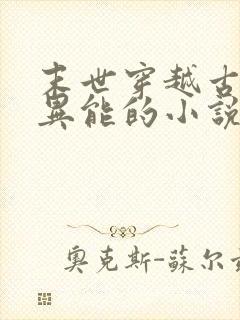 末世穿越古
異能的小說
奧克斯-蘇尔